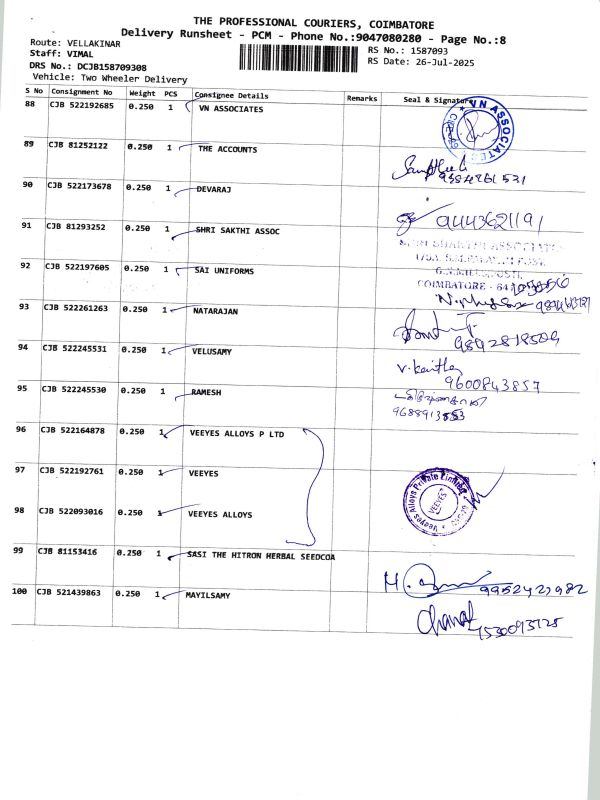 THE PROFESSIONAL COURIERS, COIMBATORE
Delivery Runsheet - PCM - Phone No.:9047080280 - Page No.:8
Route: VELLAKINAR
Staff: VIMAL
DRS No.: DCJB158709308
Vehicle: Two Wheeler Delivery
RS No.: 1587093
RS Date: 26-Jul-2025
S No Consignment No Weight PCS Consignee Details Remarks Seal & Signature
88 CJB 522192685 0.250 1 VN ASSOCIATES
VN ASSOCIATES
89 CJB 81252122 0.250 1 THE ACCOUNTS
90 CJB 522173678 0.250 1 DEVARAJ
9443621191
91 CJB 81293252 0.250 1 SHRI SAKTHI ASSOC
92 CJB 522197605 0.250 1 SAI UNIFORMS
COIMBATORE - 641
93 CJB 522261263 0.250 1 NATARAJAN
94 CJB 522245531 0.250 1 VELUSAMY
9600843857
95 CJB 522245530 0.250 1 RAMESH
96 CJB 522164878 0.250 1 VEEYES ALLOYS P LTD
97 CJB 522192761 0.250 1 VEEYES
Veeyes Alloys Private Limited
VEEYES
98 CJB 522093016 0.250 1 VEEYES ALLOYS
99 CJB 81153416 0.250 1 SASI THE HITRON HERBAL SEEDCOA
9952427982
100 CJB 521439863 0.250 1 MAYILSAMY